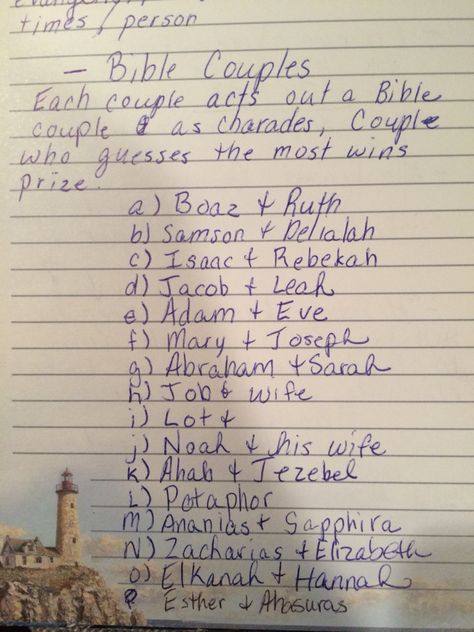 times / person
— Bible Couples
Each couple acts out a Bible
couple & as charades, Couple
who guesses the most wins
prize.
a) Boaz + Ruth
b) Samson + Delialah
c) Isaac + Rebekah
d) Jacob + Leah
e) Adam + Eve
f) Mary + Joseph
g) Abraham + Sarah
h) Job & wife
i) Lot +
j) Noah + his wife
K) Ahab & Jezebel
L) Potaphor
M) Ananias + Sapphira
N) Zacharias + Elizabeth
o) Elkanah + Hannah
P Esther + Ahasuras